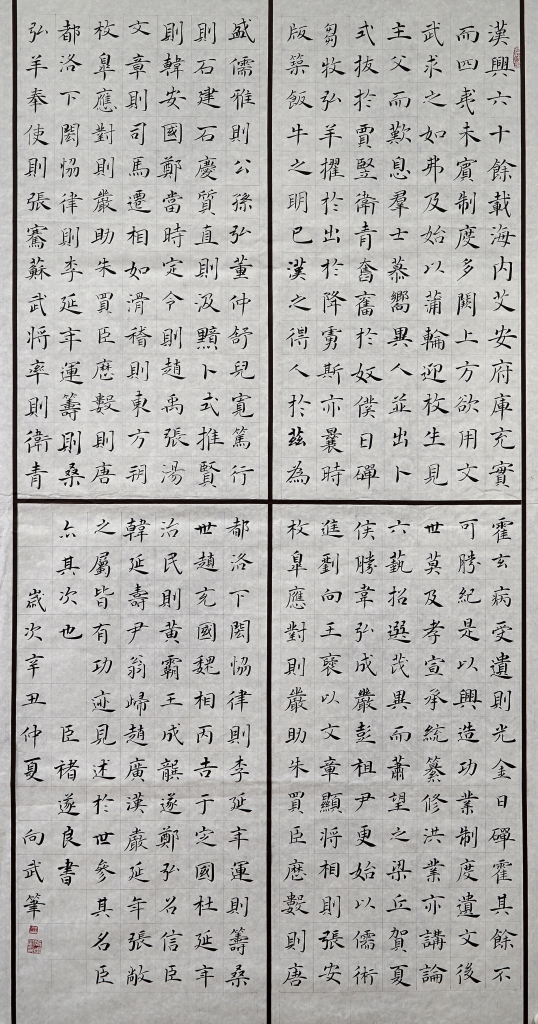 漢興六十餘載海内艾安府庫充實
而四夷未賓制度多闕上方欲用文
武求之如弗及始以蒲輪迎枚生見
主父而歎息羣士慕嚮異人並出卜
式拔於賈豎衛青奮舊於奴僕日磾
芻牧弘羊擢於出於降虜斯亦曩時
版築飯牛之明已漢之得人於兹為
盛儒雅則公孫弘董仲舒兒寬篤行
則石建石慶質直則汲黯卜式推賢
則韓安國鄭當時定令則趙禹張湯
文章則司馬遷相如滑稽則東方朔
枚皐應對則嚴助朱買臣曆數則唐
都洛下閎恊律則李延年運籌則桑
弘羊奉使則張騫蘇武將率則衛青
霍玄病受遺則光金日磾霍其餘不
可勝紀是以興造功業制度遺文後
世莫及孝宣承統纂修洪業亦講論
六藝招選茂異而蕭望之梁丘賀夏
侯勝韋弘成嚴彭祖尹更始以儒術
進劉向王襃以文章顯將相則張安
枚皐應對則嚴助朱買臣曆數則唐
都洛下閎恊律則李延年運則籌桑
世趙充國魏相丙吉于定國杜延年
治民則黃霸王成龔遂鄭弘召信臣
韓延壽尹翁歸趙廣漢嚴延年張敞
之屬皆有功迹見述於世參其名臣
亦其次也 臣褚遂良書
歲次辛丑仲夏 向武筆